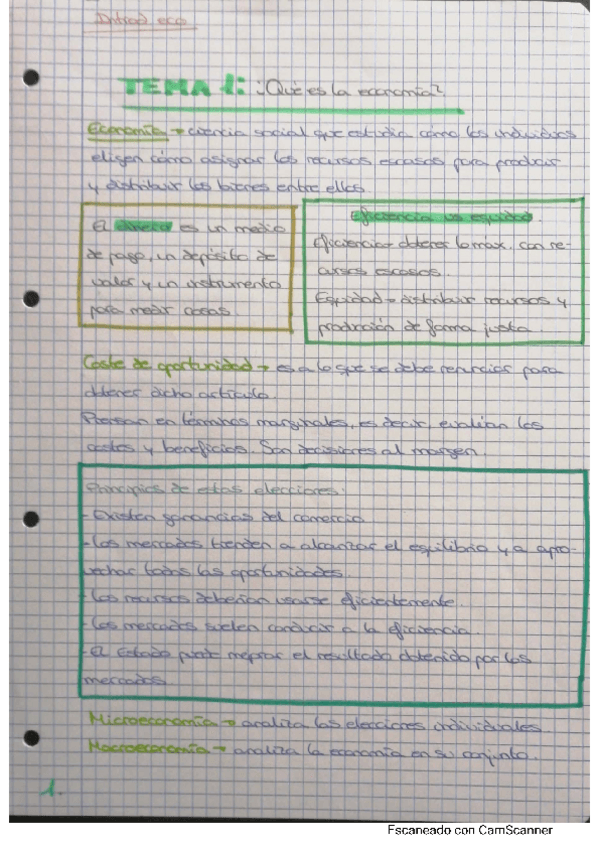 Introd eco
TEMA 1: ¿Qué es la economía?
Economía → ciencia social que estudia cómo los individuos
eligen cómo asignar los recursos escasos para producir
y distribuir los bienes entre ellos.
El dinero es un medio
de pago, un depósito de
valor y un instrumento
para medir cosas.
Eficiencia vs equidad
Eficiencia → obtener lo max. con re-
cursos escasos.
Equidad → distribuir recursos y
producción de forma justa.
Coste de oportunidad → es a lo que se debe renunciar para
obtener dicho artículo.
Piensan en términos marginales, es decir, evalúan los
costes y beneficios. Son decisiones al margen.
Principios de estas elecciones:
- Existen ganancias del comercio.
- Los mercados tienden a alcanzar el equilibrio y a apro-
vechar todas las oportunidades.
- Los recursos deberían usarse eficientemente.
- Los mercados suelen conducir a la eficiencia.
- El Estado puede mejorar el resultado obtenido por los
mercados.
Microeconomía → analiza las elecciones individuales.
Macroeconomía → analiza la economía en su conjunto.
1.
Escaneado con CamScanner